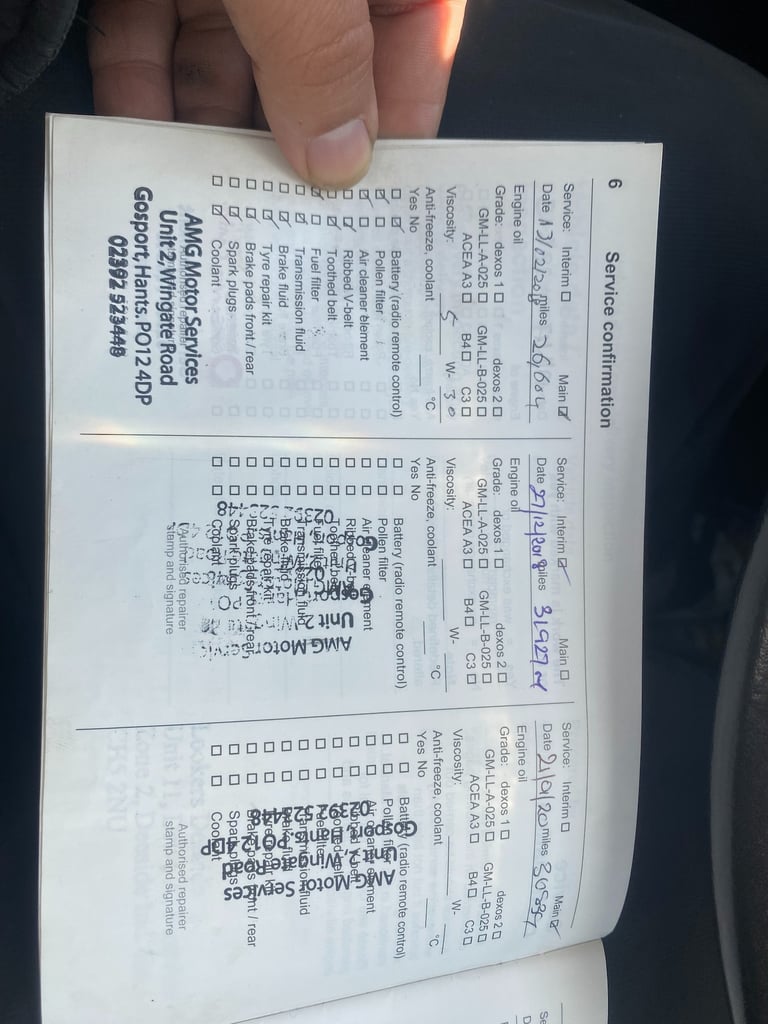 6 Service confirmation
Service: Interim ☐ Main ☑
Date 13/02/2018 miles 26,604
Engine oil
Grade: dexos 1 ☐ dexos 2 ☐
GM-LL-A-025 ☐ GM-LL-B-025 ☐
ACEA A3 ☐ B4 ☐ C3 ☐
Viscosity: 5 W- 30
Anti-freeze, coolant °C
Yes No
Battery (radio remote control)
Pollen filter
Air cleaner element
Ribbed V-belt
Toothed belt
Fuel filter
Transmission fluid
Brake fluid
Tyre repair kit
Brake pads front / rear
Spark plugs
Coolant
AMG Motor Services
Unit 2, Wingate Road
Gosport, Hants. PO12 4DP
02392 523448
Service: Interim ☑ Main ☐
Date 27/12/2018 miles 31927
Engine oil
Grade: dexos 1 ☐ dexos 2 ☐
GM-LL-A-025 ☐ GM-LL-B-025 ☐
ACEA A3 ☐ B4 ☐ C3 ☐
Viscosity: W-
Anti-freeze, coolant °C
Yes No
Battery (radio remote control)
Pollen filter
Air cleaner element
Ribbed V-belt
Toothed belt
Fuel filter
Transmission fluid
Brake fluid
Tyre repair kit
Brake pads front / rear
Spark plugs
Coolant
AMG Motor Services
Unit 2
Authorised repairer
stamp and signature
Service: Interim ☐ Main ☑
Date 21/01/20 miles
Engine oil
Grade: dexos 1 ☐ dexos 2 ☐
GM-LL-A-025 ☐ GM-LL-B-025 ☐
ACEA A3 ☐ B4 ☐ C3 ☐
Viscosity: W-
Anti-freeze, coolant °C
Yes No
Battery (radio remote control)
Pollen filter
Air cleaner element
Brake pads front / rear
Spark plugs
Coolant
AMG Motor Services
Unit 2, Wingate Road
Gosport, Hants. PO12 4DP
02392 523448
Authorised repairer
stamp and signature